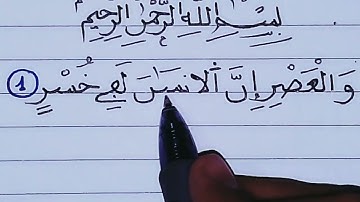 بِسْمِ اللهِ الرَّحْمٰنِ الرَّحِيمِ
وَالْعَصْرِ إِنَّ الْانسَٰنَ لَفِے خُسْرٍ (1)